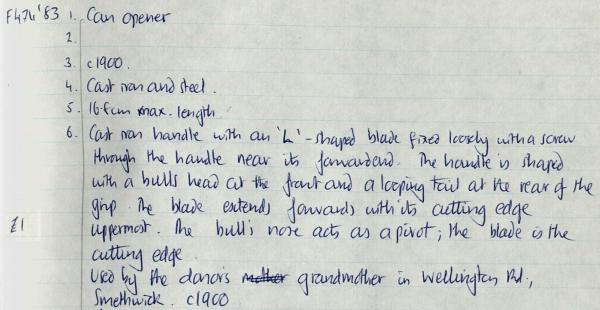 F474'83 1. Can opener
2.
3. c1900.
4. Cast iron and steel.
5. 16.6cm max. length
6. Cast iron handle with an 'L'-shaped blade fixed loosely with a screw
through the handle near its forward end. The handle is shaped
with a bulls head at the front and a looping tail at the rear of the
grip. The blade extends forwards with its cutting edge
£1 uppermost. The bull's nose acts as a pivot; the blade is the
cutting edge.
Used by the donors mother grandmother in Wellington Rd.,
Smethwick. c1900